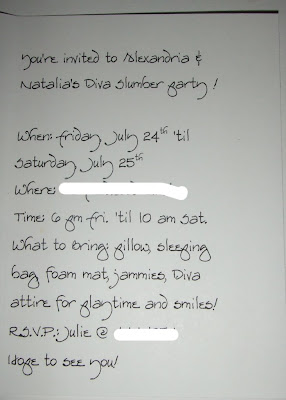 You're invited to Alexandria &
Natalia's Diva Slumber party!
When: friday, July 24th 'til
Saturday July 25th
Where:
Time: 6 pm fri. 'til 10 am Sat.
What to Bring: pillow, sleeping
bag foam mat, jammies, Diva
attire for playtime and smiles!
R.S.V.P.: Julie @
Hope to see you!